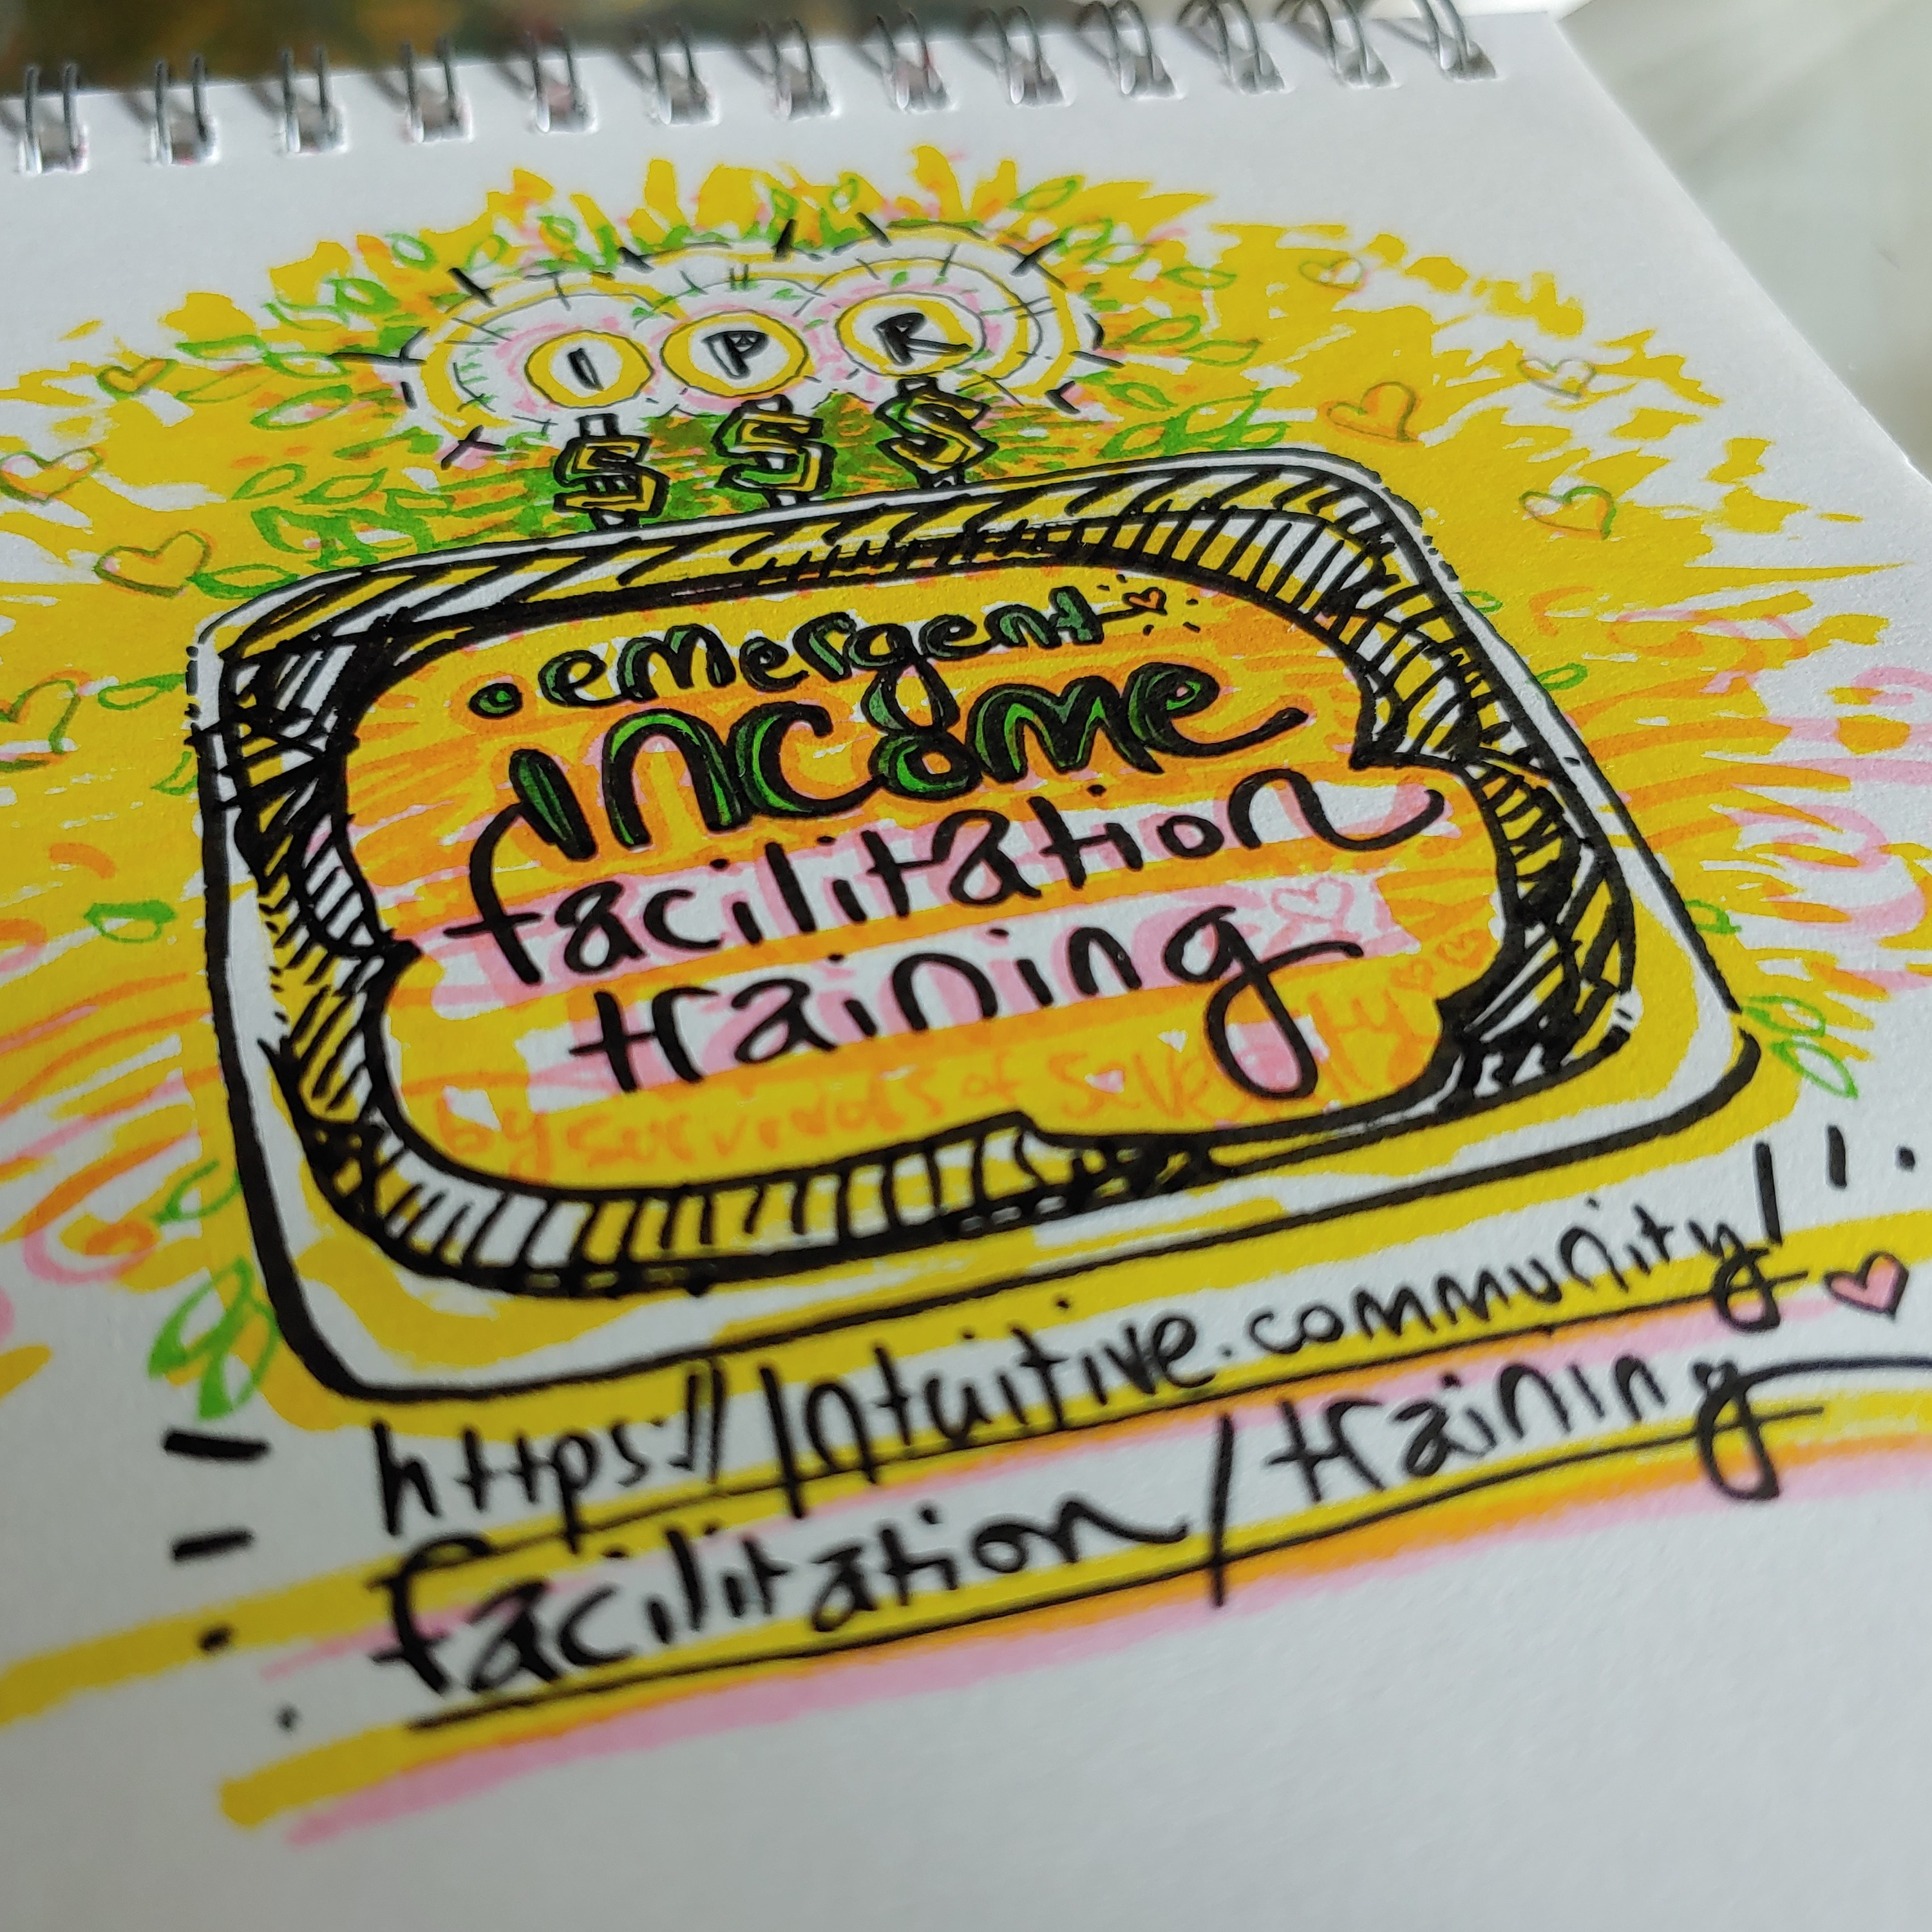 I P R
$ $ $
emergent
income
facilitation
training
by survivors of
https://intuitive.community/
facilitation/training